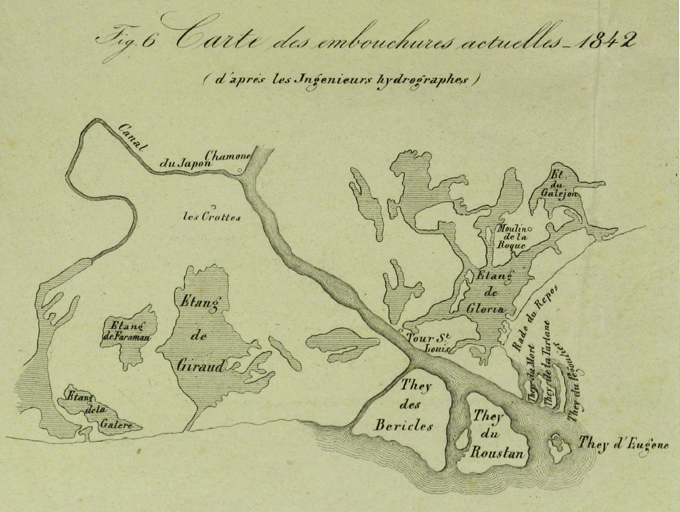 Fig. 6 Carte des embouchures actuelles _ 1842
(d'après les Ingenieurs hydrographes)
Canal
du Japon
Chamone
les Crottes
Et.
du
Galejon
Moulin
de la
Roque
Etang
de
Gloria
Etang
de Faraman
Etang
de
Giraud
Rade du Repos
Tour St.
Louis
They du Mort
They de la Tartane
Etang
de la
Galere
They
des
Bericles
They
du
Roustan
They d'Eugene